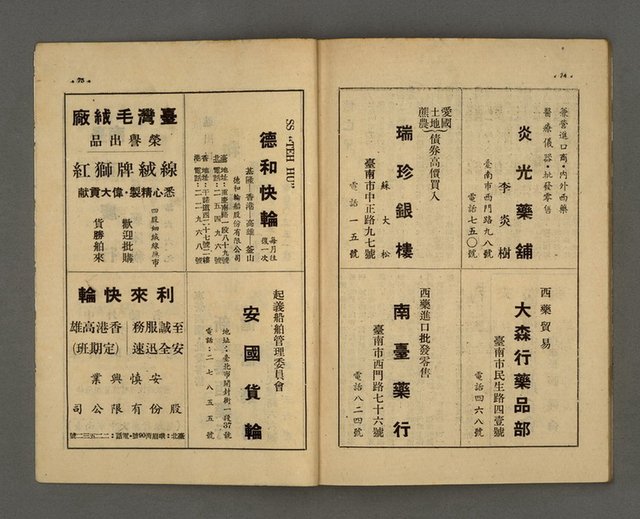 74
兼營進口商·內外西藥
醫療儀器·批發零售
炎光藥舖
李炎樹
臺南市西門路九八號
電話七五〇號
愛國
土地
農
債券高價買入
瑞珍銀樓
蘇大松
臺南市中正路九七號
電話一五號
西藥貿易
大森行藥品部
臺南市民生路四壹號
電話四六八號
西藥進口批發零售
南臺藥行
臺南市西門路七十六號
電話八二四號
75
SS "TEH HU"
德和快輪
每月往復一次
基隆—香港—高雄—釜山
德和輪船股份有限公司
臺北
地址:重慶南路一段八十九號
電話:二五四九六號
香港
地址:干諾道四二十七號二樓
電話:二二九六八號
臺灣毛絨廠
榮譽出品
線絨牌獅紅
悉心精製·偉大貢獻
四股細絨線應市
歡迎批購
貨勝舶來
起義船舶管理委員會
安國貨輪
地址:臺北市開封街一段37號
電話:二七八五五號
利來快輪
至誠服務 香港高雄
安全迅速 (定期班)
安慎興業
股份有限公司